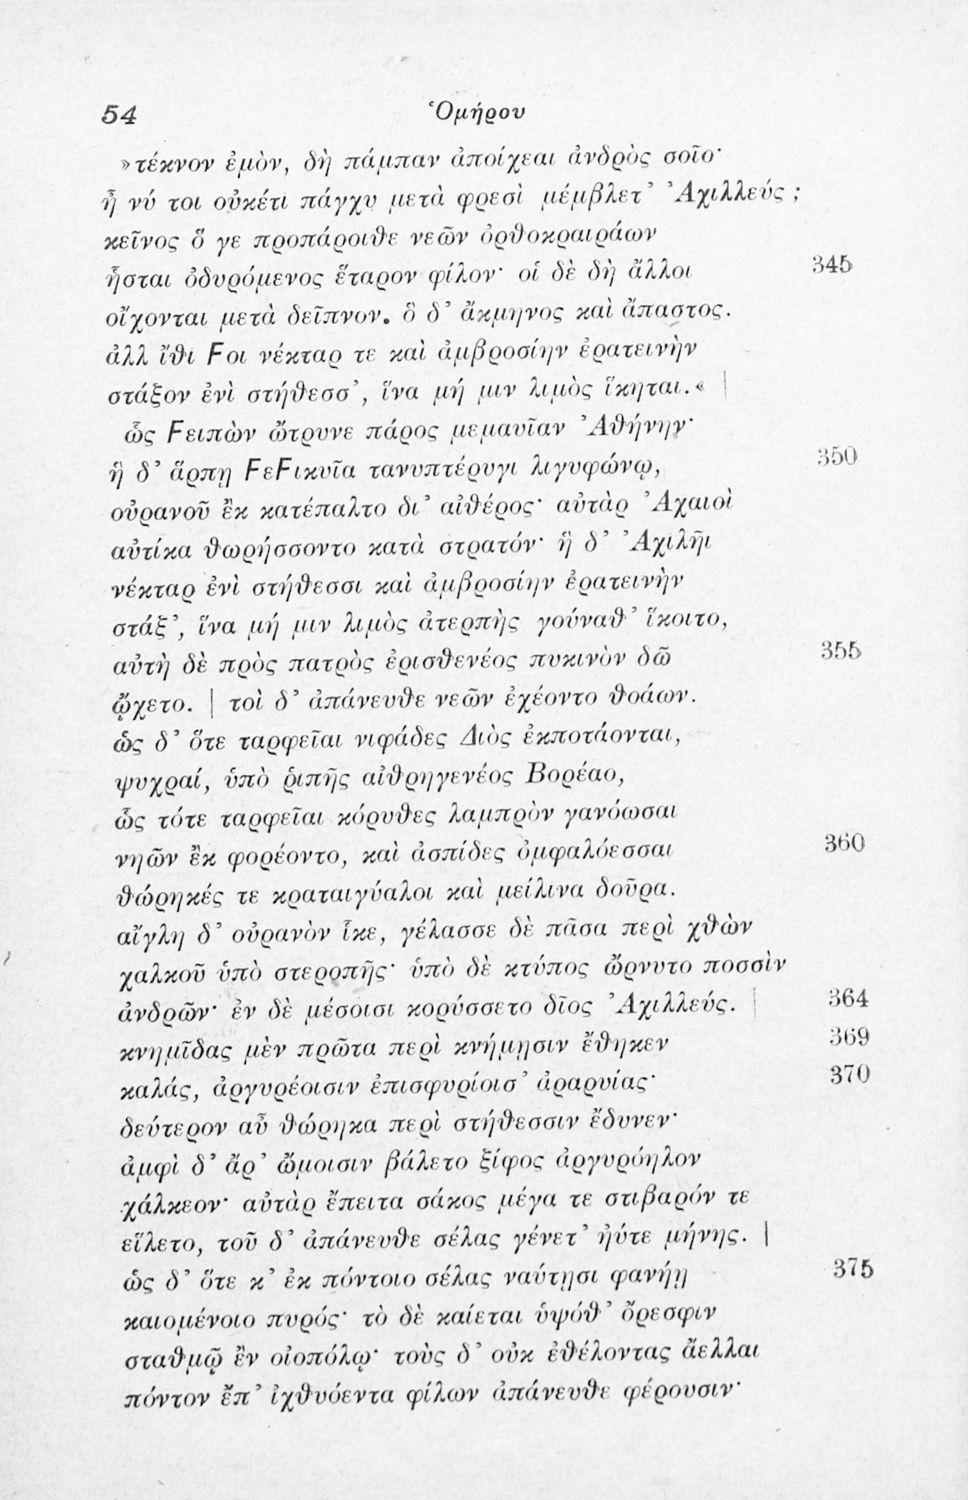 54 Ὁμήρου
»τέκνον ἐμὸν, δὴ πάμπαν ἀποίχεαι ἀνδρὸς σοῖο·
ἦ νύ τοι οὐκέτι πάγχυ μετὰ φρεσὶ μέμβλετ’ Ἀχιλλεύς ;
κεῖνος ὅ γε προπάροιθε νεῶν ὀρθοκραιράων
ἧσται ὀδυρόμενος ἕταρον φίλον· οἱ δὲ δὴ ἄλλοι 345
οἴχονται μετὰ δεῖπνον. ὃ δ’ ἄκμηνος καὶ ἄπαστος.
ἀλλ ἴθι Ϝοι νέκταρ τε καὶ ἀμβροσίην ἐρατεινὴν
στάξον ἐνὶ στήθεσσ’, ἵνα μή μιν λιμὸς ἵκηται.« |
ὣς Ϝειπὼν ὤτρυνε πάρος μεμαυῖαν Ἀθήνην·
ἣ δ’ ἅρπῃ ϜεϜικυῖα τανυπτέρυγι λιγυφώνῳ, 350
οὐρανοῦ ἒκ κατέπαλτο δι’ αἰθέρος· αὐτὰρ Ἀχαιοὶ
αὐτίκα θωρήσσοντο κατὰ στρατόν· ἣ δ’ Ἀχιλῆι
νέκταρ ἐνὶ στήθεσσι καὶ ἀμβροσίην ἐρατεινὴν
στάξ’, ἵνα μή μιν λιμὸς ἀτερπὴς γούναθ’ ἵκοιτο,
αὐτὴ δὲ πρὸς πατρὸς ἐρισθενέος πυκινὸν δῶ 355
ᾤχετο. | τοὶ δ’ ἀπάνευθε νεῶν ἐχέοντο θοάων.
ὡς δ’ ὅτε ταρφεῖαι νιφάδες Διὸς ἐκποτάονται,
ψυχραί, ὑπὸ ῥιπῆς αἰθρηγενέος Βορέαο,
ὣς τότε ταρφεῖαι κόρυθες λαμπρὸν γανόωσαι
νηῶν ἒκ φορέοντο, καὶ ἀσπίδες ὀμφαλόεσσαι 360
θώρηκές τε κραταιγύαλοι καὶ μείλινα δοῦρα.
αἴγλη δ’ οὐρανὸν ἷκε, γέλασσε δὲ πᾶσα περὶ χθὼν
χαλκοῦ ὑπὸ στεροπῆς· ὑπὸ δὲ κτύπος ὤρνυτο ποσσὶν
ἀνδρῶν· ἐν δὲ μέσοισι κορύσσετο δῖος Ἀχιλλεύς. | 364
κνημῖδας μὲν πρῶτα περὶ κνήμῃσιν ἔθηκεν 369
καλάς, ἀργυρέοισιν ἐπισφυρίοισ’ ἀραρυίας· 370
δεύτερον αὖ θώρηκα περὶ στήθεσσιν ἔδυνεν·
ἀμφὶ δ’ ἄρ’ ὤμοισιν βάλετο ξίφος ἀργυρόηλον
χάλκεον· αὐτὰρ ἔπειτα σάκος μέγα τε στιβαρόν τε
εἵλετο, τοῦ δ’ ἀπάνευθε σέλας γένετ’ ἠύτε μήνης. |
ὡς δ’ ὅτε κ’ ἐκ πόντοιο σέλας ναύτῃσι φανήῃ 375
καιομένοιο πυρός· τὸ δὲ καίεται ὑψόθ’ ὄρεσφιν
σταθμῷ ἒν οἰοπόλῳ· τοὺς δ’ οὐκ ἐθέλοντας ἄελλαι
πόντον ἔπ’ ἰχθυόεντα φίλων ἀπάνευθε φέρουσιν·